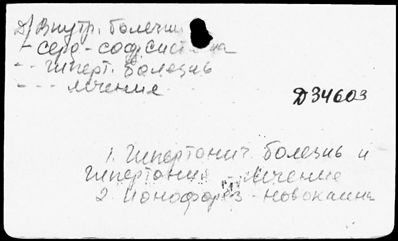 Д) Внутр. болезни
- серд-сос. система
- - гиперт. болезнь
- - - лечение
Д34603
1. Гипертонич. болезнь и
гипертония - лечение
2. Ионофорез - новокаина